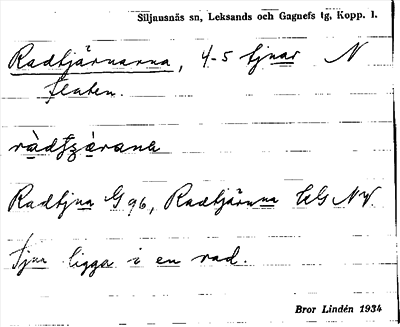 Siljnusnäs sn, Leksands och Gagnefs tg, Kopp. l.
Radtjärnarna, 4-5 tjnar N
flaten.
Radtjna G 96, Radtjärnna N V.
Tjna ligga i en rad.
Bror Lindén 1934